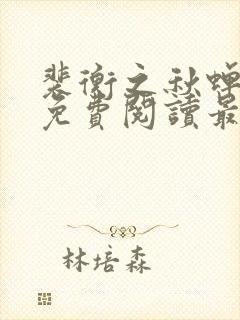 裴衡之秋蟬
免費閱讀最
林培森